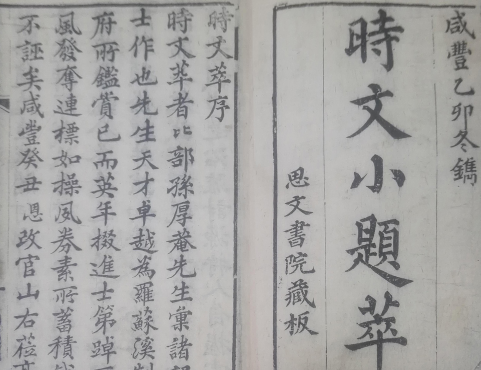 咸豐乙卯冬鐫
時文小題萃
思文書院藏板
時文萃序
時文萃者比部孫厚菴先生彙諸
士作也先生天才卓越為羅蘇溪制
府所鑑賞已而英年掇進士第踔
風發奪連標如操風券素所蓄積
不誣矣咸豐癸丑恩改官山右蒞